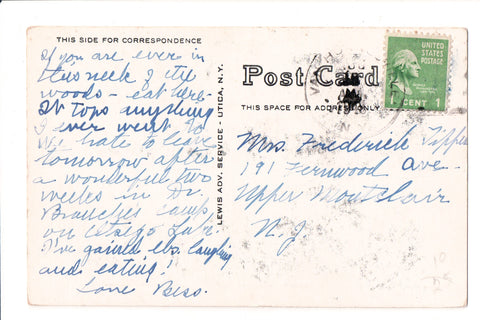 THIS SIDE FOR CORRESPONDENCE
If you are ever in
this neck of the
woods - eat here -
It tops anything
I ever went to
We hate to leave
tomorrow after
a wonderful two
weeks in Dr.
camp
on Otsego Lake.
I've gained lbs. laughing
and eating!
Love Bess.
LEWIS ADV. SERVICE - UTICA, N.Y.
Post Card
THIS SPACE FOR ADDRESS ONLY
UNITED
STATES
POSTAGE
1 CENT 1
Mrs. Frederick
191 Fernwood Ave -
Upper Montclair
N.J.